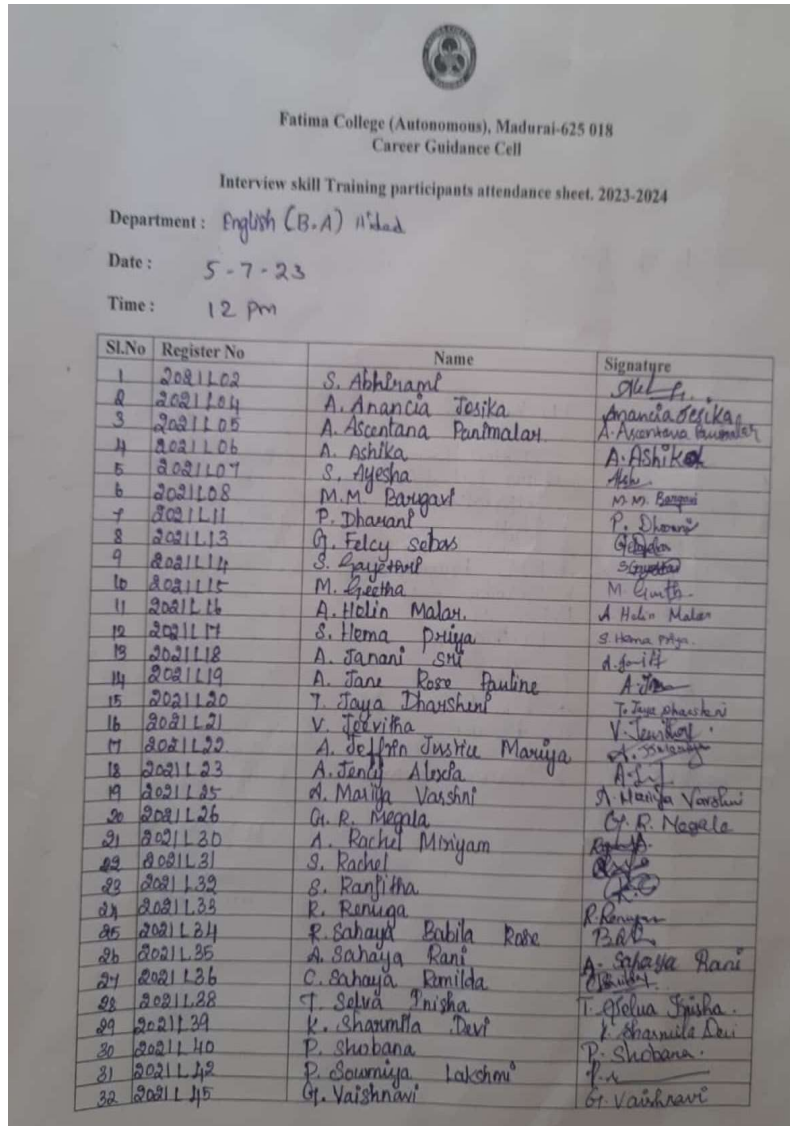 Fatima College (Autonomous), Madurai-625 018
Career Guidance Cell
Interview skill Training participants attendance sheet. 2023-2024
Department : English (B.A) Aided
Date : 5-7-23
Time : 12 pm
Sl.No Register No Name Signature
1 2021L02 S. Abhirami
2 2021L04 A. Anancia Jesika Anancia Jesika
3 2021L05 A. Ascentana Panimalar A. Ascentana Panimalar
4 2021L06 A. Ashika A. Ashika
5 2021L07 S. Ayesha
6 2021L08 M.M. Bargavi M.M. Bargavi
7 2021L11 P. Dharani P. Dharani
8 2021L13 G. Felcy Sebas
9 2021L14 S. Gayethri
10 2021L15 M. Geetha
11 2021L16 A. Holin Malar. A Holin Malar
12 2021L17 S. Hema Priya S. Hema Priya.
13 2021L18 A. Janani Sri
14 2021L19 A. Jane Rose Pauline
15 2021L20 T. Jaya Dharsheni T. Jaya Dharsheni
16 2021L21 V. Jeevitha
17 2021L22 A. Mariya
18 2021L23 A.
19 2021L25 A. Mariya Varshni A. Mariya Varshni
20 2021L26 G. R. Megala G. R. Megala
21 2021L30 A. Rachel Miriyam
22 2021L31 S. Rachel
23 2021L32 S. Ranjitha
24 2021L33 R. Renuga
25 2021L34 R. Sahaya Babila Rose
26 2021L35 A. Sahaya Rani A. Sahaya Rani
27 2021L36 C. Sahaya Romilda
28 2021L38 T. Selva Inisha T. Selva Inisha.
29 2021L39 K. Sharmila Devi K. Sharmila Devi
30 2021L40 P. Shobana P. Shobana.
31 2021L42 P. Soumiya Lakshmi
32 2021L45 G. Vaishnavi G. Vaishnavi